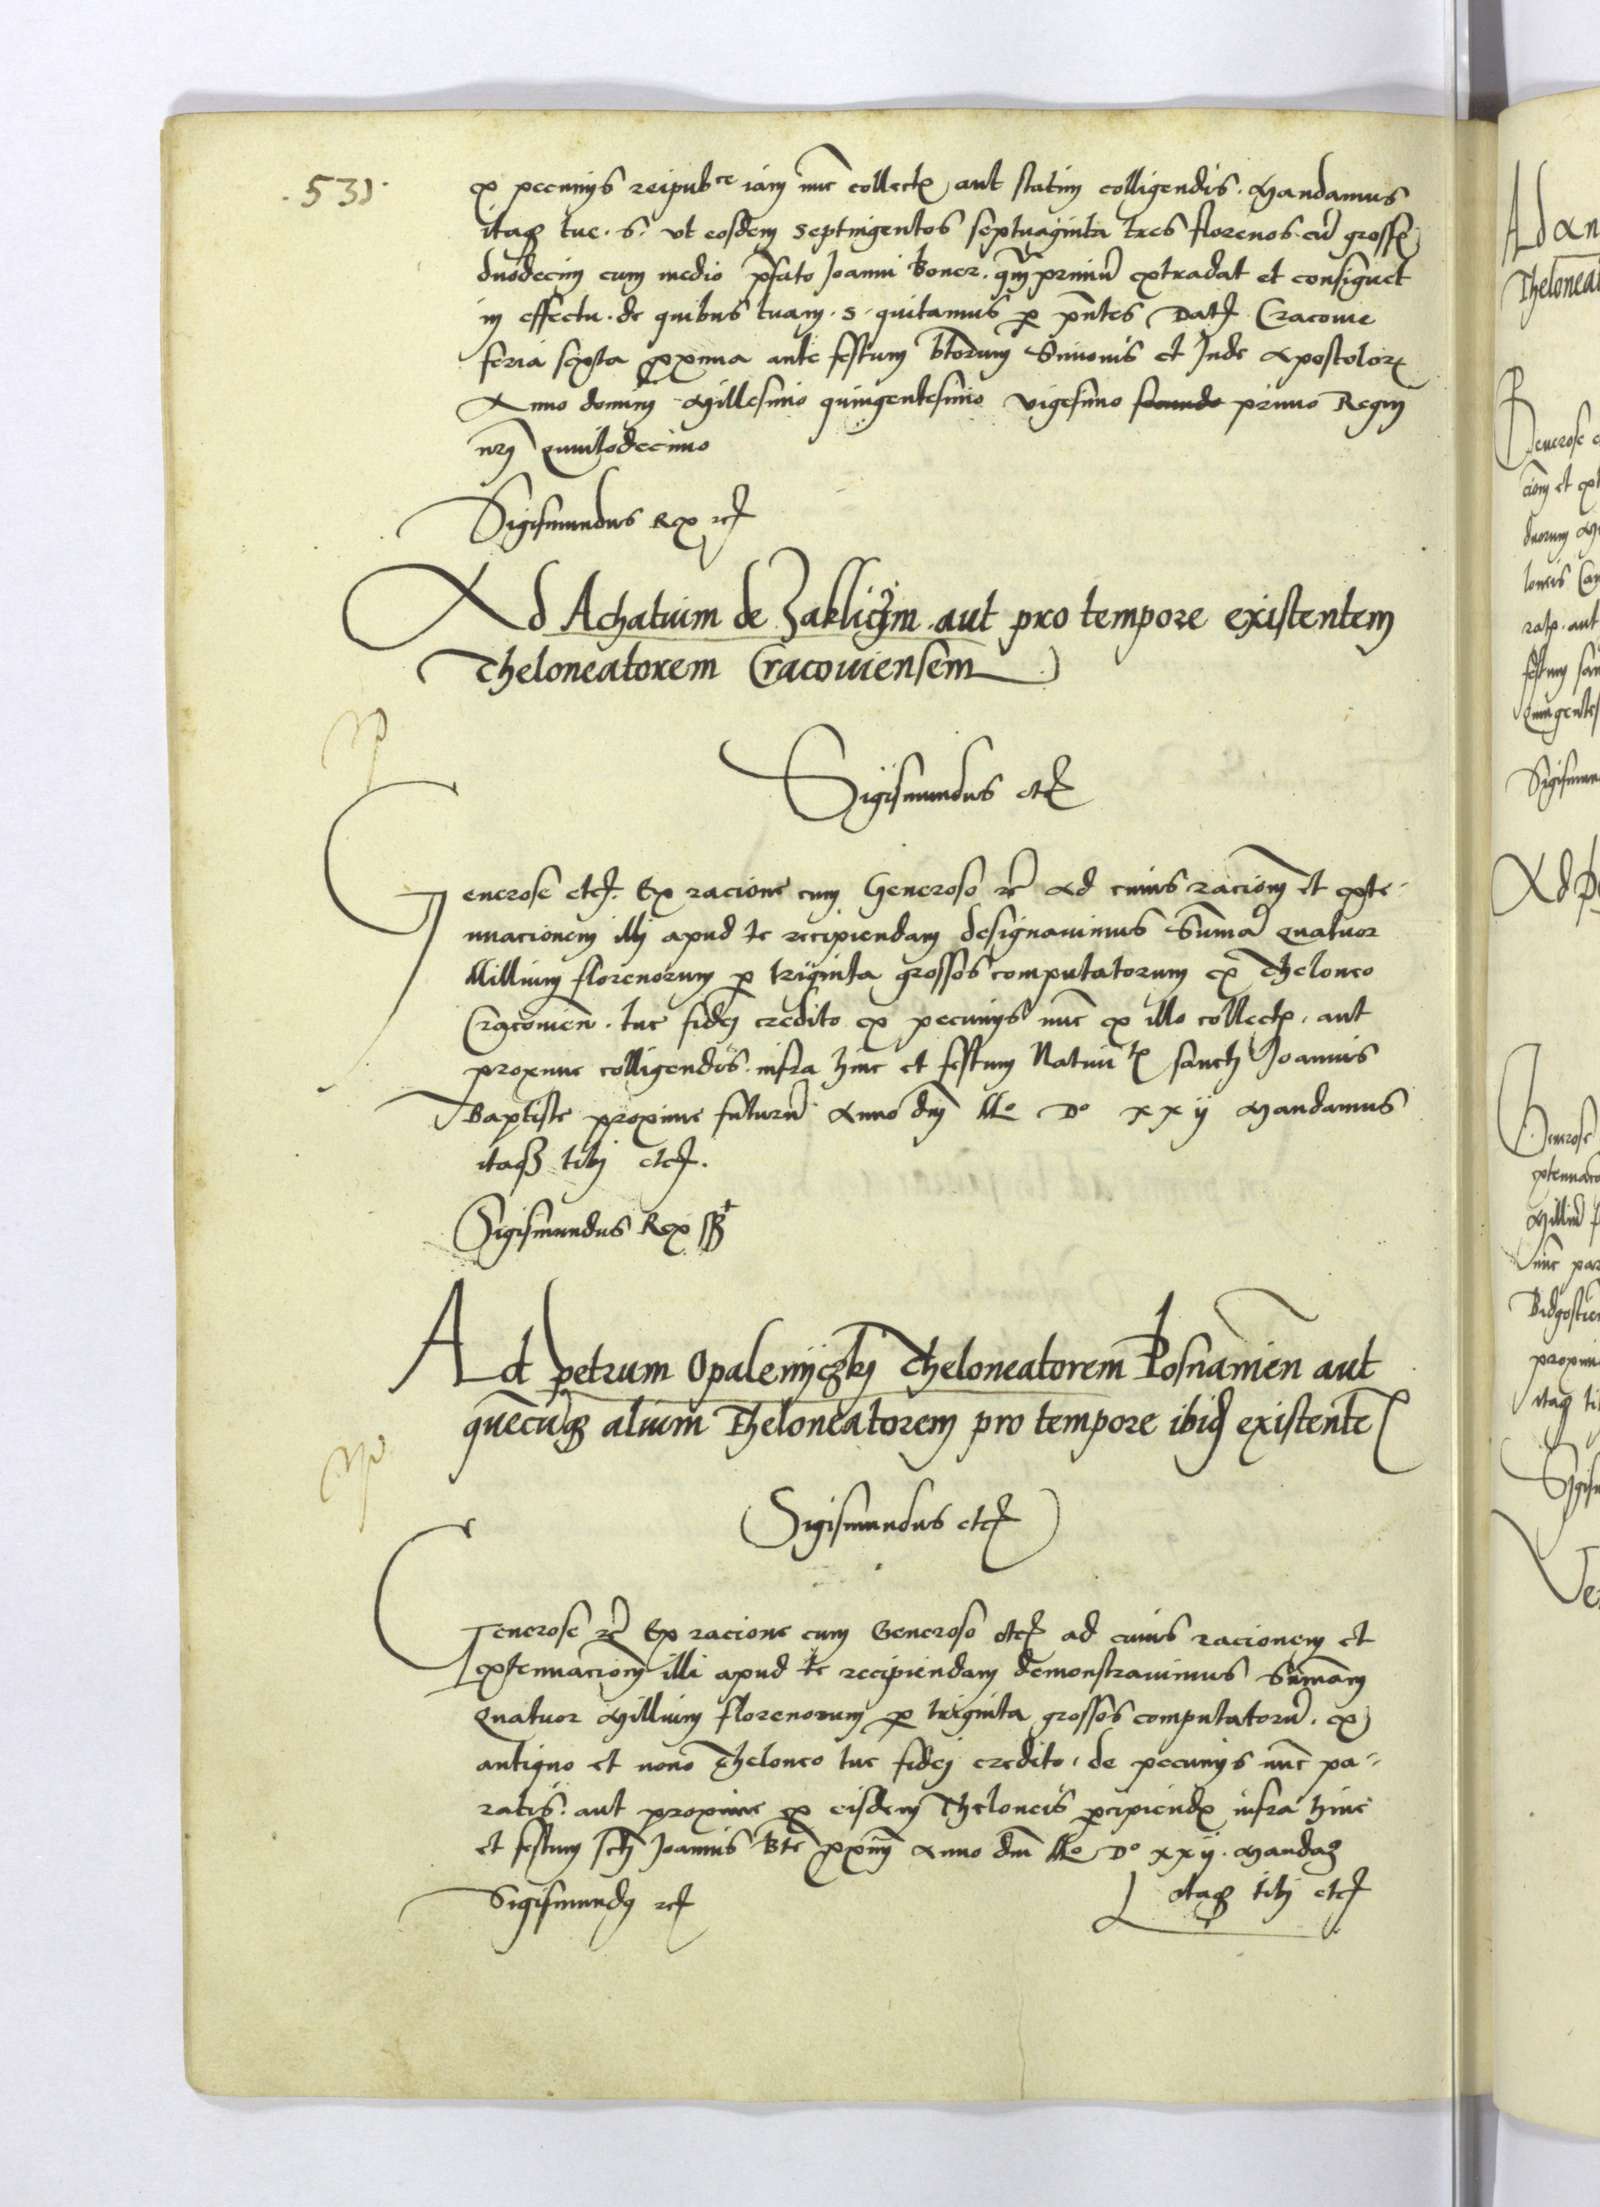 .531.
ex pecunijs reipubce iam nuc collect aut statim colligendis. Mandamus
itaq tue. S. vt eosdem Septingentos septuaginta tres florenos cu gross
duodecim cum medio pfato Joanni Boner. qm primu extradat et consignet
in effectu. de quibus tuam. S. quitamus p pntes Dat Cracouie
feria sexta pxima ante festum btorum Simonis et Jude Apostolor
Anno domini Millesimo quingentesimo vigesimo secundo primo Regni
nri quintodecimo
Sigismundus Rex
Ad Achatium de Zakliczin. aut pro tempore existentem
Theloneatorem Cracouiensem
Sigismundus etc
Generose etc. Ex racione cum Generoso rc Ad cuius racionem et exte-
nuacionem illi apud te recipiendam designauimus Suma quatuor
Millium florenorum p triginta grossos computatorum ex Theloneo
Cracouien. tue fidej credito ex pecunijs nuc ex illo collect, aut
proxime colligendis. infra hinc et festum Natiui sancti Joannis
Baptiste proxime futuru Anno dni Mo Do xxij Mandamus
itaq tibi etc.
Sigismundus Rex sst
Ad petrum Opalenyczkj Theloneatorem Posnanien aut
quecuq alium Theloneatorem pro tempore ibid existente
Sigismundus etc
Generose rc Ex racione cum Generoso etc ad cuius racionem et
extenuacionem illi apud te recipiendam demonstrauimus Sumam
quatuor Millium florenorum p triginta grossos computatoru. ex
antiquo et nouo Theloneo tue fidej credito, de pecunijs nuc pa-
ratis. aut proxime ex eisdem Theloneis pcipiend infra hinc
et festum sct Joannis Bte pxim Anno dni Mo Do xxij. Mandaq
itaq tibi etc
Sigismundq rc